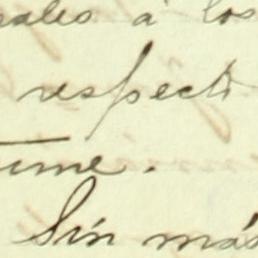 eales á los
respect
time.
Sin más